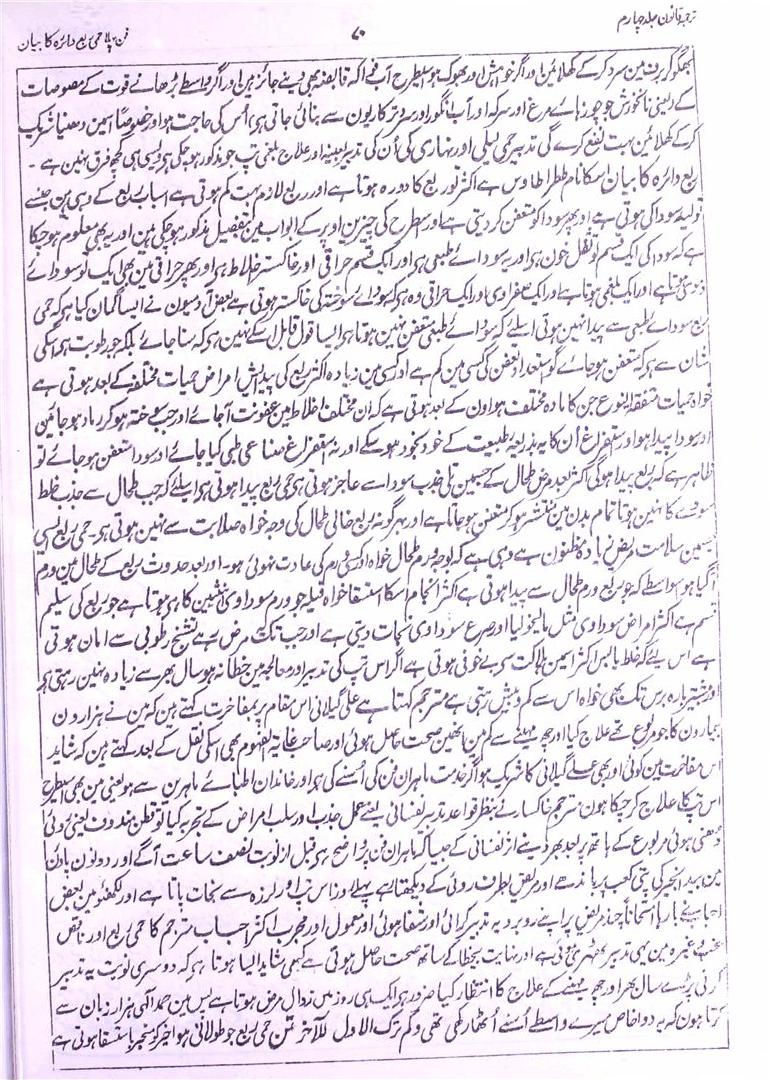 ترجمہ قانون جلد چہارم
۷۰
فن پہلا حمی ربع دائرہ کا بیان
بھگو کر برف مین سرد کرکے کھلائین اور اگر خواہش اور بھوک ہو اسیطرح آب فواکہ قابضہ بھی دینے جائز ہین اور اگر واسطے بڑھانے قوت کے مصوصات
کے یعنی نانخورش جو چوزہائے مرغ اور سرکہ اور آب انگور اور سرد ترکاریون سے بنائی جاتی ہی اُس کی حاجت ہو اور خصوصاً اسمین دھنیا شریک
کرکے کھلائین بہت نفع کرے گی تدبیر حمی لیلی اور نہاری کی اُن کی تدبیر بعینہ اور علاج بلغمی تپ جو مذکور ہو چکی ہی ویسی ہی کچھ فرق نہین ہے ۔
ربع دائرہ کا بیان اسکا نام طیطراطاوس ہے اکثر تو ربع کا دورہ ہوتا ہے اور ربع لازم بہت کم ہوتی ہے اسباب ربع کے وہی ہین جنسے
تولید سودا کی ہوتی ہے اور پھر سودا کو متعفن کر دیتی ہے اور اسطرح کی چیزین اوپر کے ابواب مین بتفصیل مذکور ہو چکی ہین اور یہ بھی معلوم ہو چکا
ہے کہ سودا کی ایک قسم تو ثفل خون ہی اور یہ سودائے طبیعی ہی اور ایک قسم حراقی اور خاکستر اخلاط ہی اور پھر حراقی مین بھی ایک تو سودائے
دموی ہوتا ہے اور ایک بلغمی ہوتا ہے اور ایک صفراوی اور ایک حراقی وہ ہی کہ سودائے سوختہ کی خاکستر ہوتی ہے بعض آدمیون نے ایسا گمان کیا ہی کہ حمی
ربع سودائے طبیعی سے پیدا نہین ہوتی اسلیے کہ سودائے طبیعی متعفن نہین ہوتا ہی ایسا قول قابل اسکے نہین ہی کہ سنا جائے بلکہ جو رطوبت ہی اسکی
شان سے ہی کہ متعفن ہو جائے گو استعداد تعفن کی کسی مین کم ہے اور کسی مین زیادہ اکثر ربع کی پیدایش امراض حمیات مختلفہ کے بعد ہوتی ہے
خواہ حمیات متفقۃ النوع جن کا مادہ مختلف ہو اون کے بعد ہوتی ہے کہ ان مختلف اخلاط مین عفونت آجائے اور جب سوختہ ہو کر رماد ہو جائین
اور سودا پیدا ہو اور استفراغ اُن کا نہ بذریعہ طبیعت کے خود بخود ہو سکے اور نہ استفراغ صناعی طبی کیا جائے اور سودا متعفن ہو جائے تو
ظاہر ہے کہ ربع پیدا ہوگی اکثر بعد مرض طحال کے جسمین تلی جذب سودا سے عاجز ہوتی ہی حمی ربع پیدا ہوتی ہی اسلیے کہ جب طحال سے جذب خلط
سوداکا نہین ہوتا تمام بدن مین منتشر ہو کر متعفن ہو جاتا ہے اور بہر گونہ ربع خالی طحال کی وجع خواہ صلابت سے نہین ہوتی ہی ۔ حمی ربع ایسی
جسمین سلامت مریض زیادہ مظنون ہے وہی ہے کہ بوجہ ورم طحال خواہ اور کسی ورم کی عادت نہوئی ہو۔ اور بعد حدوث ربع کے طحال مین ورم
آگیا ہو سواسطے کہ جو ربع ورم طحال سے پیدا ہوتی ہے اکثر انجام اسکا استسقا خواہ فیلہ جو ورم سوداوی انثیین کا ہی ہوتا ہے جو ربع کی سلیم
قسم ہے اکثر امراض سوداوی مثل مالیخولیا اور صرع سوداوی نجات دیتی ہے اور جب تک مرض رہے تشنج رطوبی سے امان ہوتی
ہے اس لیے کہ خلط یابس اکثر اسمین ہلاکت سے بے خوفی ہوتی ہے اگر اس تپ کی تدبیر اور معالجہ مین خطا نہ ہو سال بھر سے زیادہ نہین رہتی ہی
اور بیشتر بارہ برس تک بھی خواہ اس سے کم و بیش رہتی ہے مترجم کہتا ہے علی گیلانی اس مقام پر بمفاخرت کہتے ہین کہ مین نے ہزارون
بیمارون کا جو مربوع تھے علاج کیا اور چھ مہینے سے کم مین انھین صحت حاصل ہوئی اور صاحب غایۃ المفہوم بھی اسکی نقل کے بعد کہتے ہین کہ شاید
اس مفاخرت مین کوئی اور بھی علے گیلانی کا شریک ہو اگر خدمت ماہران فن کی اُسنے کی ہو اور خاندان اطبائے ماہرین سے ہو یعنی مین بھی اسیطرح
اس تپ کا علاج کر چکا ہون مترجم خاکسار نے بنظر قواعد تدبیر نفسانی یعنے عمل جذب اور سلب امراض کے تجربہ کیا تو قطن مندوف یعنی روئی
دُھنی ہوئی مربوع کے ہاتھ پر بعد بھر دینے اثر نفسانی کے جیسا کہ ماہران فن پر واضح ہی قبل از نوبت نصف ساعت آگے اور دونون پاؤن
مین بید انجیر کی پتی کعب پر باندھے اور مریض بطرف روئی کے دیکھتا رہے پہلے روز اس تپ اور لرزہ سے نجات پاتا ہے اور لکھنؤ مین بعض
احبا نے بارہا امتحاناً چند مریض پر اپنے روبرو یہ تدبیر کرائی اور شفا ہوئی اور معمول اور مجرب اکثر احباب مترجم کا حمی ربع اور ناقص
غب غیرہ مین یہی تدبیر ٹھہری ہوئی ہے اور نہایت بیخطا کے ساتھ صحت حاصل ہوتی ہے کبھی شاید ایسا ہوتا ہے کہ دوسری نوبت یہ تدبیر
کرنی پڑے سال بھر اور چھ مہینے کے علاج کا انتظار کیا ضرور ہی ایک ہی روز مین زوال مرض ہوتا ہے پس مین حمد آلہی ہزار زبان سے
کرتا ہون کہ یہ دوا خاص میرے واسطے اُسنے اُٹھا رکھی تھی و کم ترک الاول للآخر متن حمی ربع جو طولانی ہو آخر کو منجر باستسقا ہوتی ہے